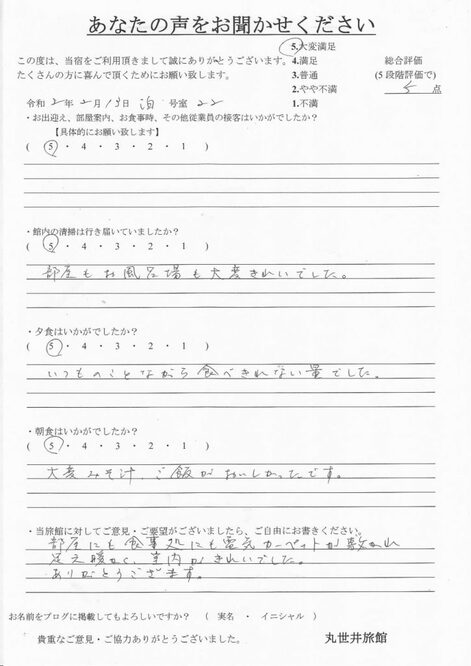 あなたの声をお聞かせください
この度は、当宿をご利用頂きまして誠にありがとうございます。
たくさんの方に喜んで頂くためにお願い致します。
5.大変満足
4.満足
3.普通
2.やや不満
1.不満
総合評価
(5段階評価で)
5 点
令和 2年 2月 13日 泊 号室 22
・お出迎え、部屋案内、お食事時、その他従業員の接客はいかがでしたか?
【具体的にお願い致します】
( 5 ・ 4 ・ 3 ・ 2 ・ 1 )
・館内の清掃は行き届いていましたか?
( 5 ・ 4 ・ 3 ・ 2 ・ 1 )
部屋もお風呂場も大変きれいでした。
・夕食はいかがでしたか?
( 5 ・ 4 ・ 3 ・ 2 ・ 1 )
いつものことながら食べきれない量でした。
・朝食はいかがでしたか?
( 5 ・ 4 ・ 3 ・ 2 ・ 1 )
大変みそ汁、ご飯がおいしかったです。
・当旅館に対してご意見・ご要望がございましたら、ご自由にお書きください。
部屋にも食事処にも電気カーペットが敷かれ
足元暖かく、室内がきれいでした。
ありがとうございます。
お名前をブログに掲載してもよろしいですか? ( 実名 ・ イニシャル )
貴重なご意見・ご協力ありがとうございました。
丸世井旅館